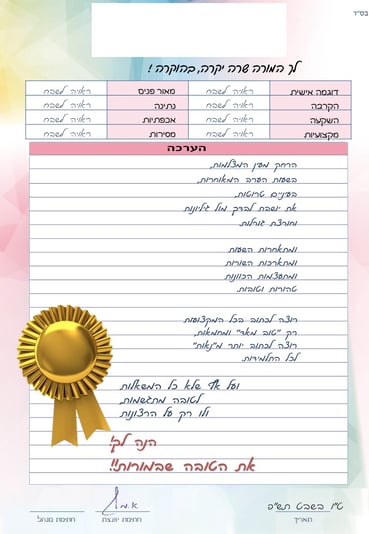 בס״ד
לך המורה שרה יקרה, בהוקרה !
דוגמה אישית ראויה לשבח מאור פנים ראויה לשבח
הקרבה ראויה לשבח נתינה ראויה לשבח
השקעה ראויה לשבח אכפתיות ראויה לשבח
מקצועיות ראויה לשבח מסירות ראויה לשבח
הערכה
הרחק מעין המצלמות,
בשעות הערב המאוחרות,
בעינים טרוטות,
את יושבת לבדך מול גיליונות
וחורצת גורלות.
ומתאחרות השעות
ומתארכות השורות
ומתעצמות הכוונות
טהורות וטובות.
רוצה לכתוב בכל המקצועות
רק "טוב מאד" ומחמאות,
רוצה לכתוב יותר מ"נאות"
לכל התלמידות.
ועל אף שלא כל המשאלות
לטובה מתגשמות,
ולו רק על הרצונות
הנה לך!
את הטובה שבמורות!!
א.מ.
ט"ו בשבט תש"פ
תאריך
חתימת יועצת
חתימת מנהל